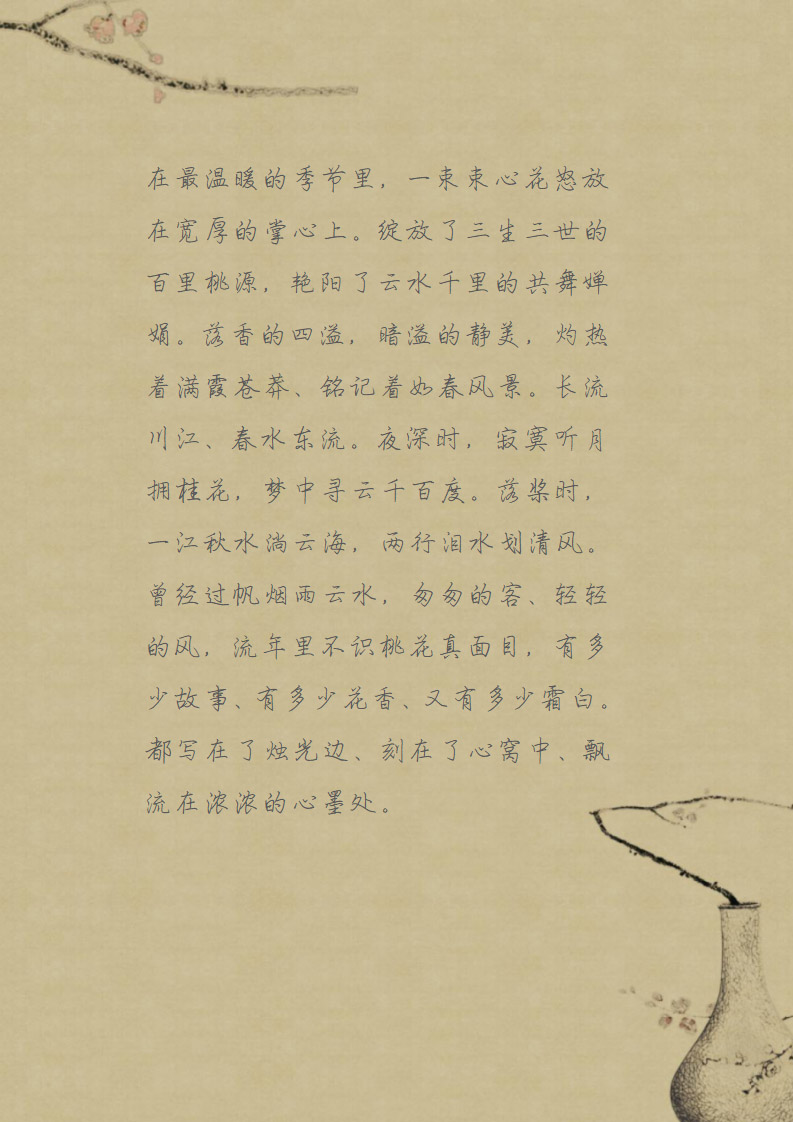 在最温暖的季节里，一束束心花怒放
在宽厚的掌心上。绽放了三生三世的
百里桃源，艳阳了云水千里的共舞婵
娟。落香的四溢，暗溢的静美，灼热
着满霞苍莽、铭记着如春风景。长流
川江、春水东流。夜深时，寂寞听月
拥桂花，梦中寻云千百度。落桨时，
一江秋水淌云海，两行泪水划清风。
曾经过帆烟雨云水，匆匆的客、轻轻
的风，流年里不识桃花真面目，有多
少故事、有多少花香、又有多少霜白。
都写在了烛光边、刻在了心窝中、飘
流在浓浓的心墨处。